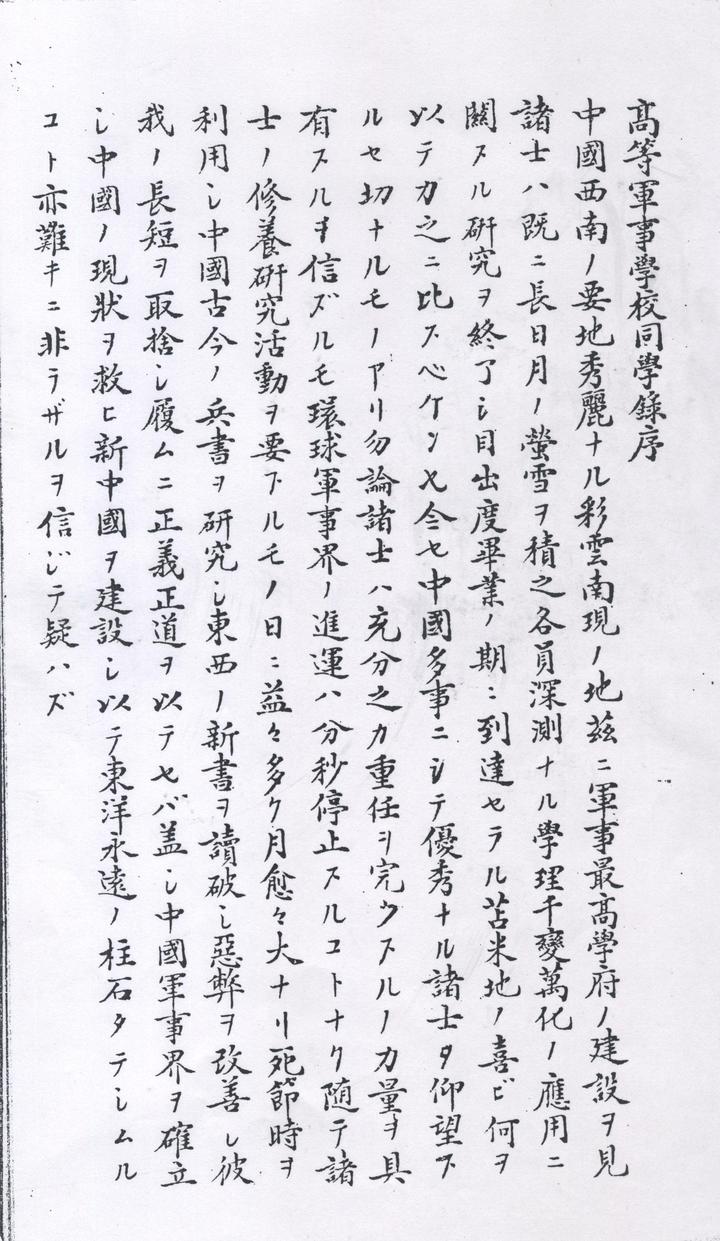 高等軍事學校同學錄序
中國西南ノ要地秀麗ナル彩雲南現ノ地茲ニ軍事最高學府ノ建設ヲ見
諸士ハ既ニ長日月ノ螢雪ヲ積之各員深測ナル學理千變萬化ノ應用ニ
關スル研究ヲ終了シ目出度畢業ノ期ニ到達セラル苔米地ノ喜ビ何ヲ
以テカ之ニ比スベケン
中國多事ニシテ優秀ナル諸士タ仰望ス
ルセ切ナルモノアリ勿論諸士ハ充分之カ重任ヲ完ウスルノ力量ヲ具
有スルヲ信ズルモ環球軍事界ノ進運ハ分秒停止スルコトナク随テ諸
士ノ修養研究活動ヲ要スルモノ日ニ益々多ク月愈々大ナリ死節時ヲ
利用シ中國古今ノ兵書ヲ研究シ東西ノ新書ヲ讀破シ惡弊ヲ改善シ彼
我ノ長短ヲ取捨シ履ムニ正義正道ヲ以テセバ盖シ中國軍事界ヲ確立
シ中國ノ現狀ヲ救ヒ新中國ヲ建設シ以テ東洋永遠ノ柱石タラシムル
コト亦難キニ非ラザルヲ信ジテ疑ハズ